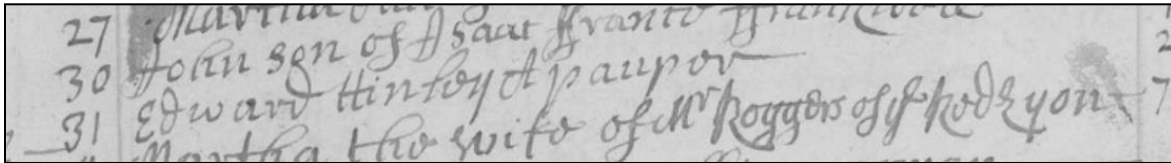 27 Martha
30 John son of Isaac Frante
31 Edward Hinley A pauper
Martha the wife of Mr Roggers of ye Red Lyon